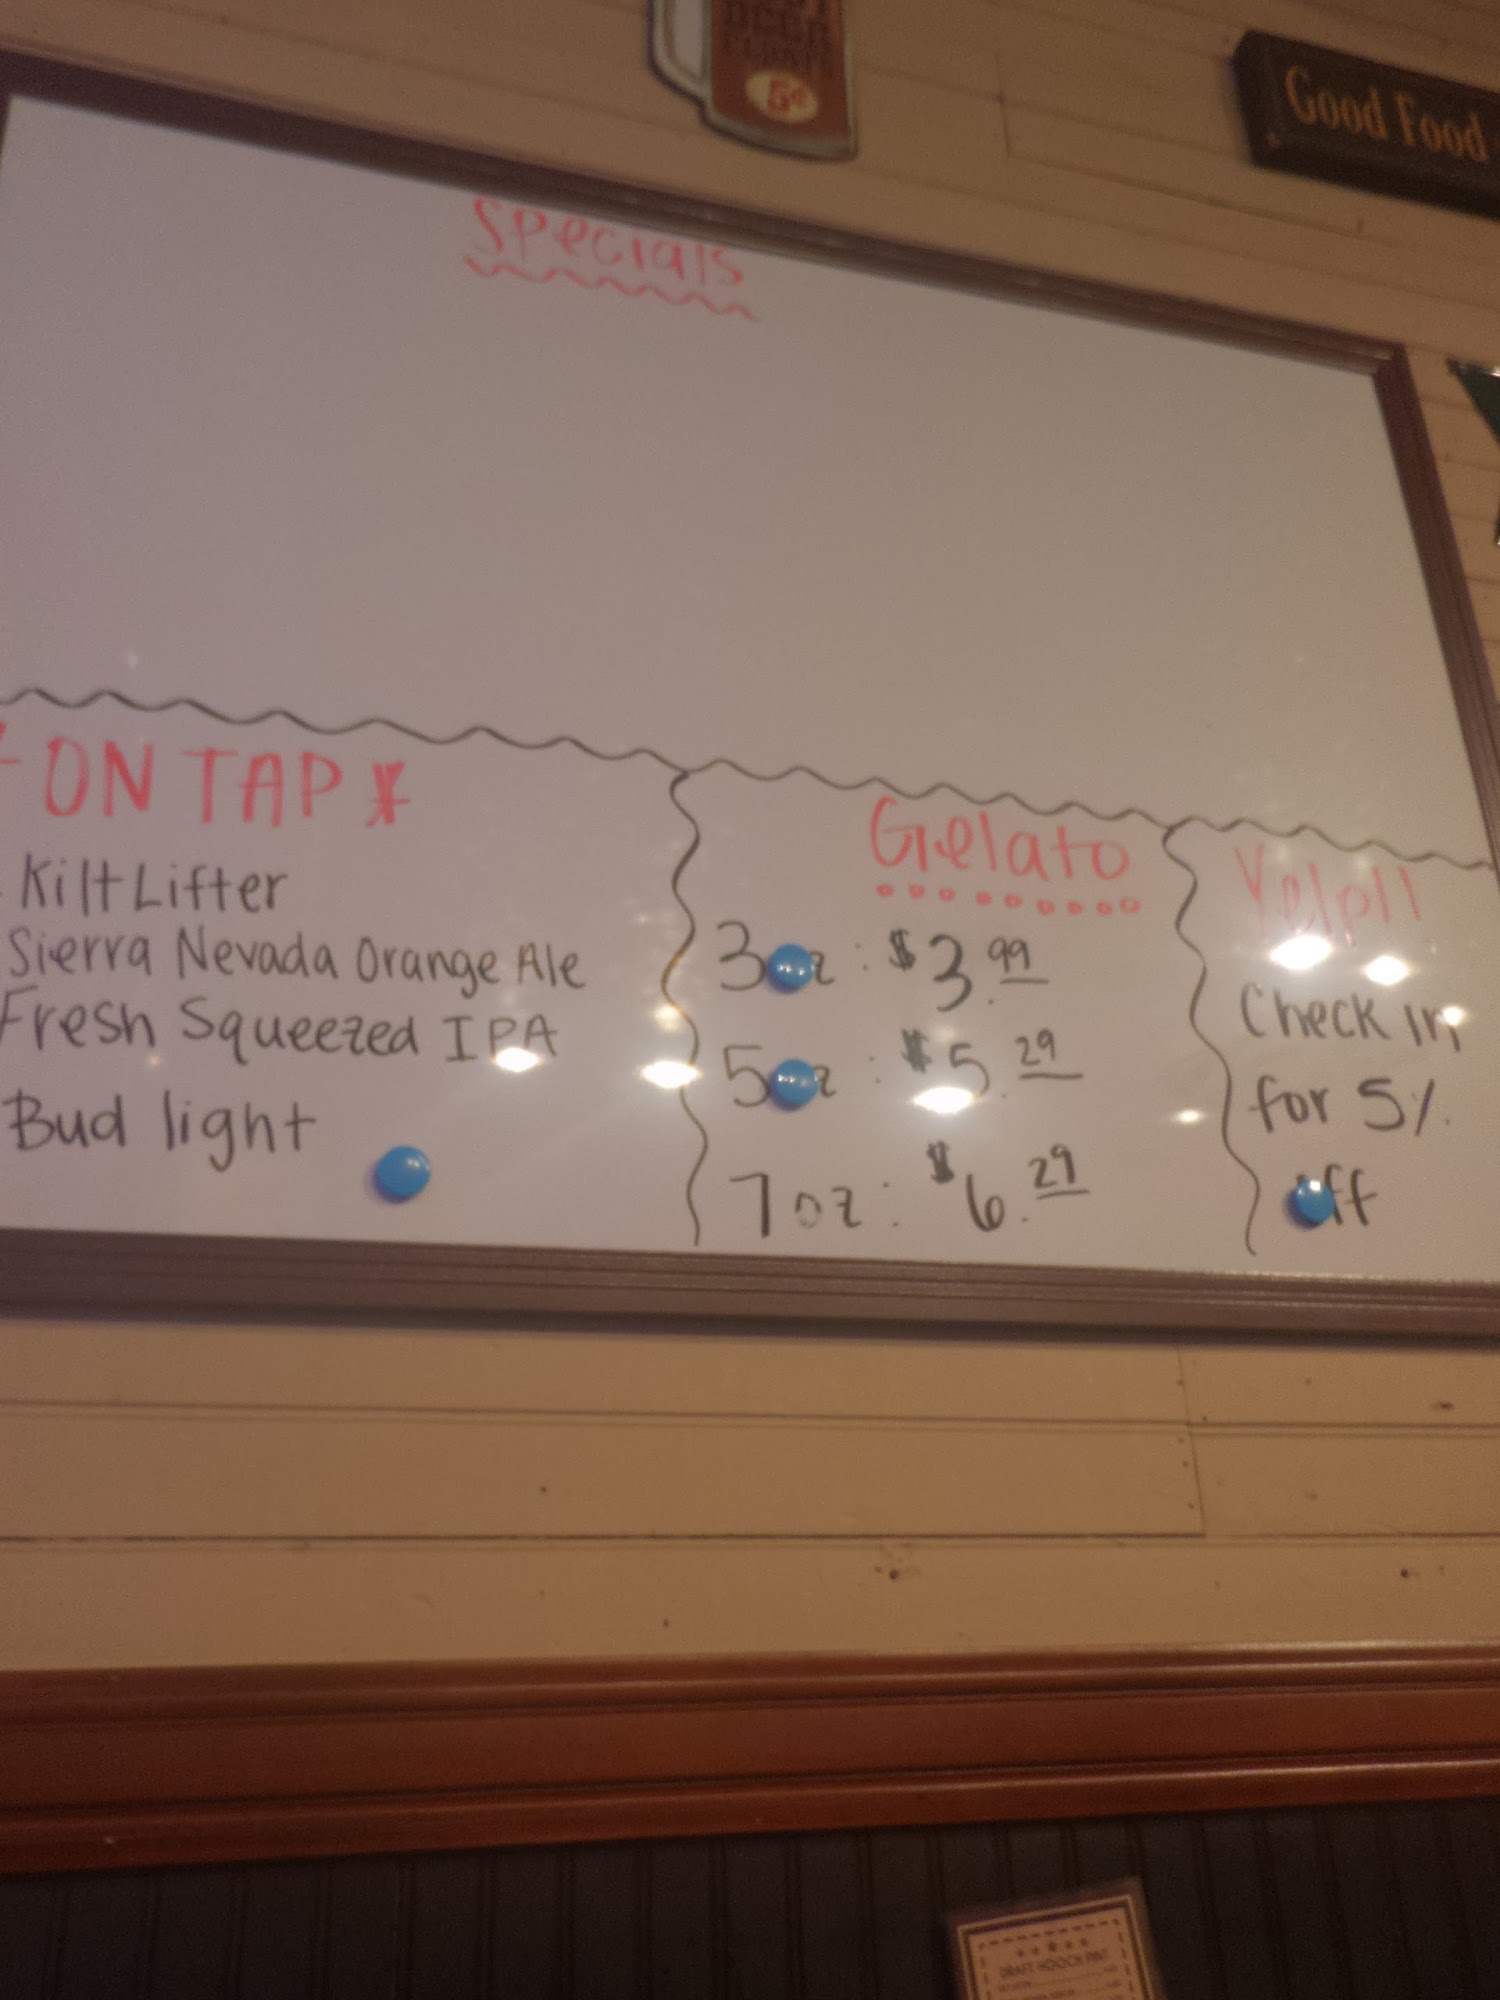 5¢
Good Food
Specials
ON TAP
Kilt Lifter
Sierra Nevada Orange Ale
Fresh Squeezed IPA
Bud light
Gelato
3oz: $3.99
5oz: $5.29
7oz: $6.29
Yelp!!
Check in
for 5%
off
DRAFT HOOCH PINT